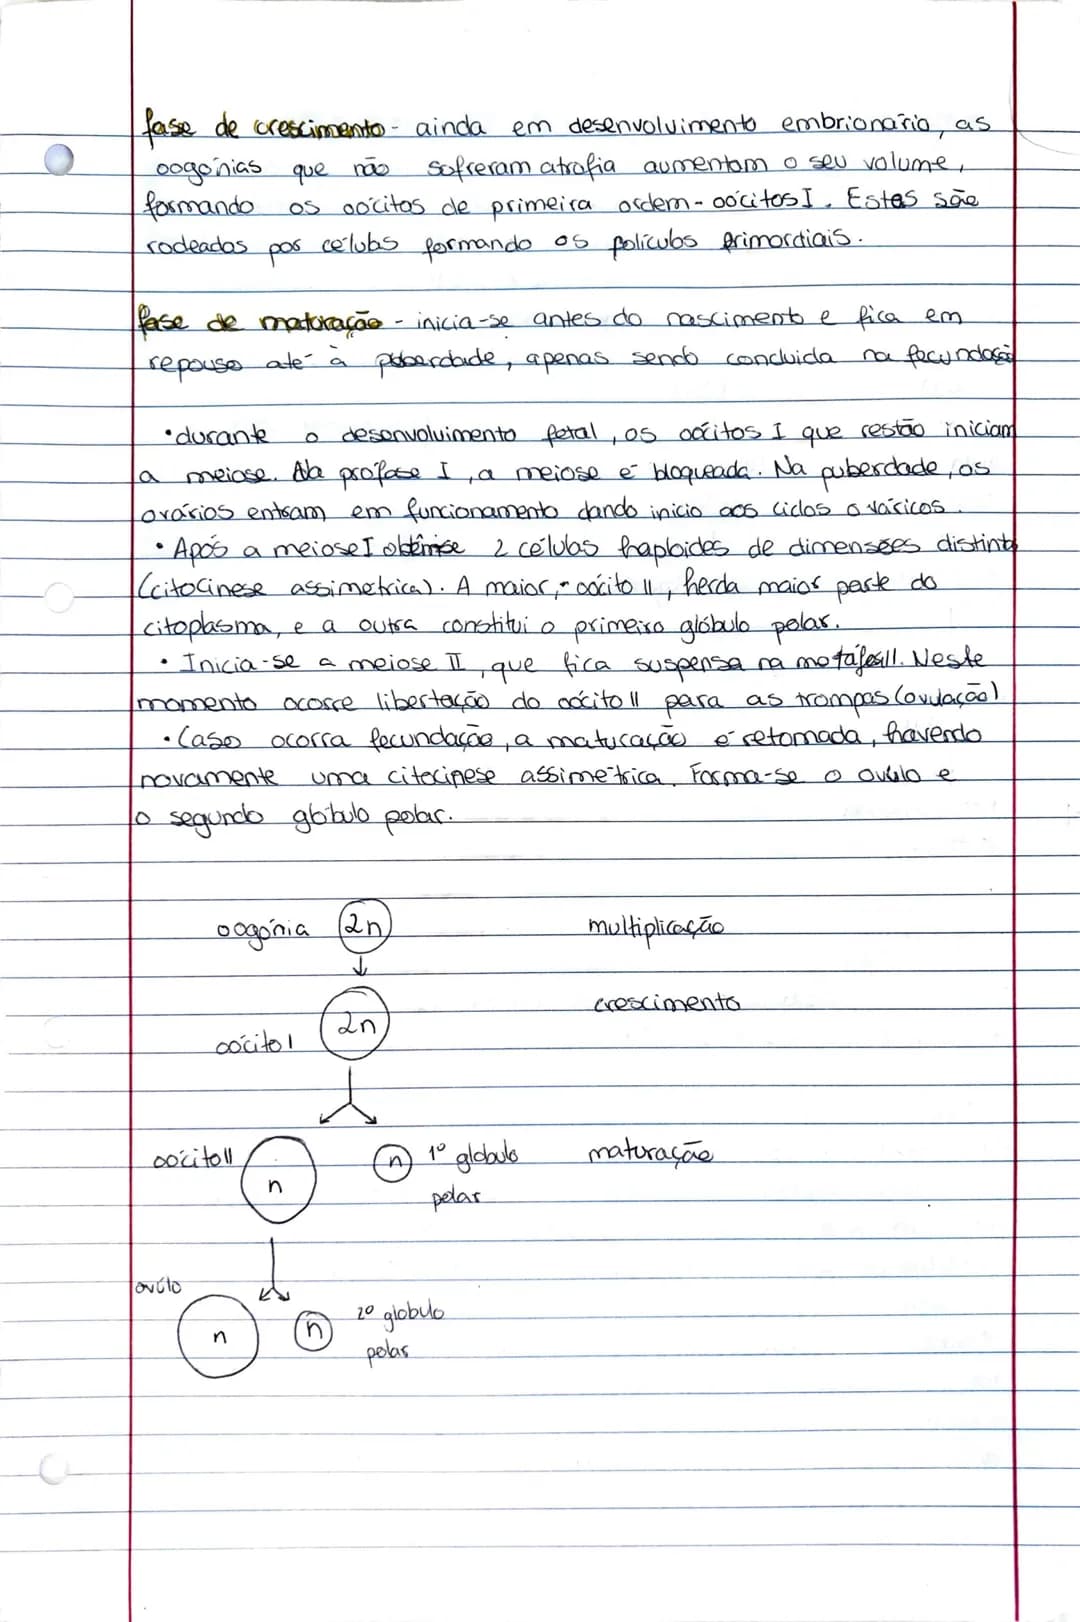 fase de crescimento - ainda em desenvolvimento embrionário, as
oogónias que não sofreram atrofia aumentam o seu volume,
formando os oócitos de primeira ordem - oócitos I. Estes são
rodeados por células formando os folículos primordiais.
fase de maturação - inicia-se antes do nascimento e fica em
repouso até à puberdade, apenas sendo concluida na fecundação
• durante o desenvolvimento fetal, os oócitos I que restão iniciam
a meiose. Na profase I, a meiose é bloqueada. Na puberdade, os
ovários entram em funcionamento dando inicio aos ciclos ováricos.
• Após a meiose I obtêm-se 2 células haploides de dimensões distintas
(citocinese assimetrica). A maior, - oócito II, herda maior parte do
citoplasma, e a outra constitui o primeiro glóbulo polar.
• Inicia-se a meiose II, que fica suspensa na metáfase II. Neste
momento ocorre libertação do oócito II para as trompas (ovulação)
• Caso ocorra fecundação, a maturação é retomada, havendo
novamente uma citocinese assimétrica. Forma-se o óvulo e
o segundo glóbulo polar.
oogónia 2n multiplicação
crescimento
2n
oócito I
oócito II n n 1º globulo maturação
polar
ovúlo
n n 2º globulo
polar